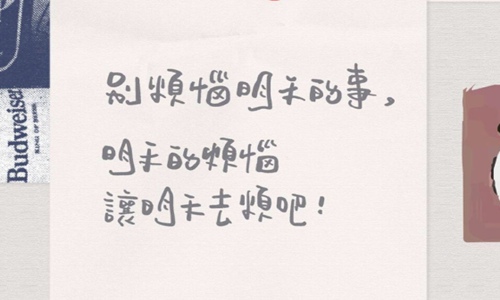 別煩惱明天的事，
明天的煩惱
讓明天去煩吧！
Budweiser
KING OF BEERS